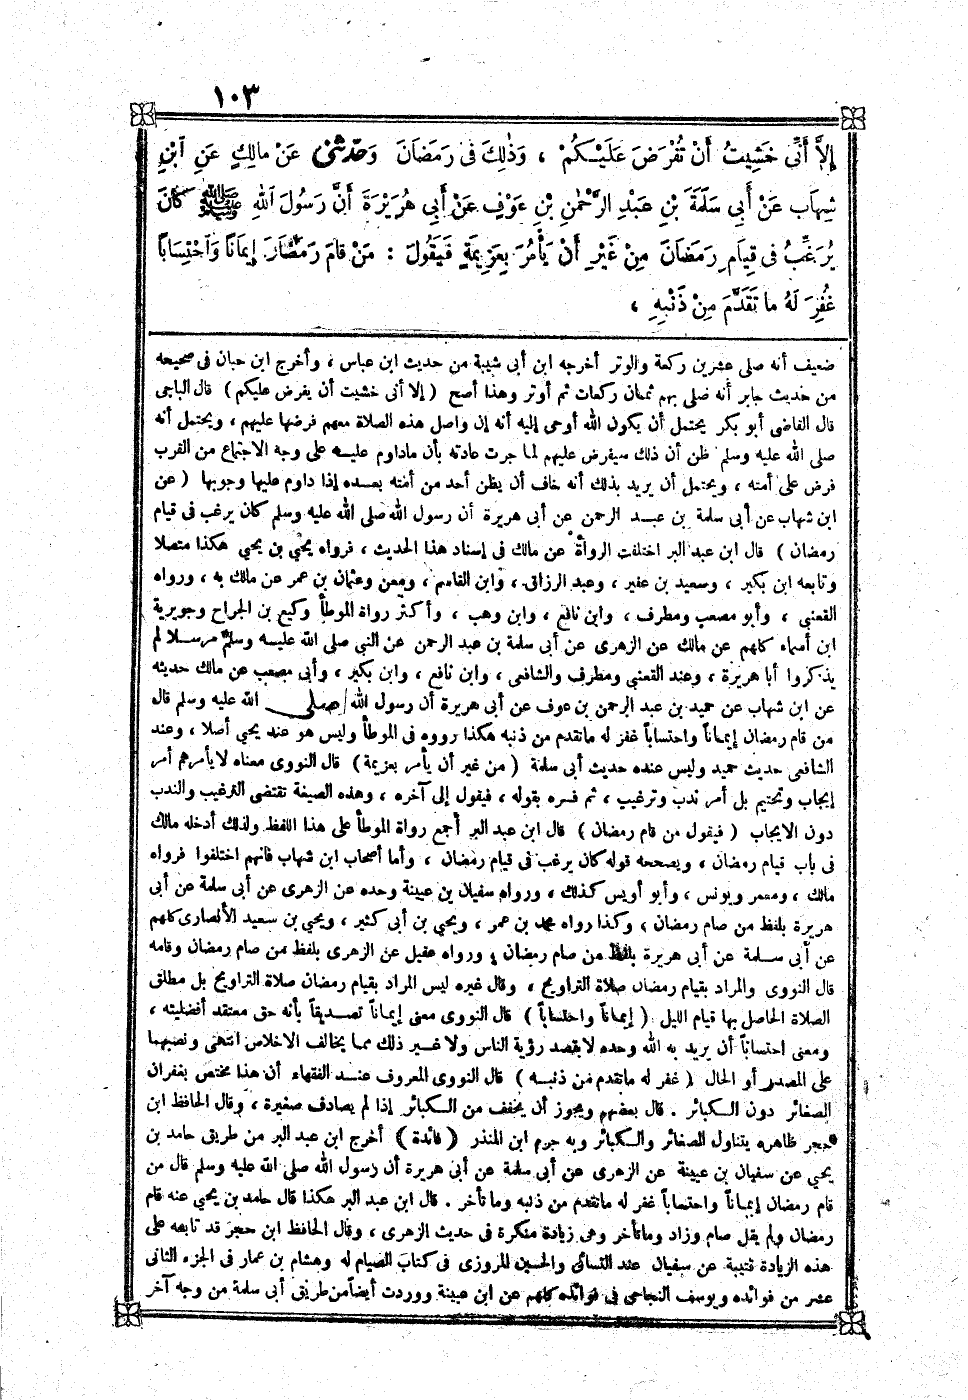 ١٠٣
إِلَّا أَنِّي خَشِيتُ أَنْ تُفْرَضَ عَلَيْكُمْ ، وَذٰلِكَ فِي رَمَضَانَ وَحَدَّثَنِي عَنْ مَالِكٍ عَنِ ابْنِ
شِهَابٍ عَنْ أَبِي سَلَمَةَ بْنِ عَبْدِ الرَّحْمٰنِ بْنِ عَوْفٍ عَنْ أَبِي هُرَيْرَةَ أَنَّ رَسُولَ اللهِ ﷺ كَانَ
يُرَغِّبُ فِي قِيَامِ رَمَضَانَ مِنْ غَيْرِ أَنْ يَأْمُرَ بِعَزِيمَةٍ فَيَقُولَ : مَنْ قَامَ رَمَضَانَ إِيمَانًا وَاحْتِسَابًا
غُفِرَ لَهُ مَا تَقَدَّمَ مِنْ ذَنْبِهِ ،
ضعيف أنه صلى عشرين ركعة والوتر أخرجه ابن أبى شيبة من حديث ابن عباس ، وأخرج ابن حبان فى صحيحه
من حديث جابر أنه صلى بهم ثمان ركعات ثم أوتر وهذا أصح (إلا أنى خشيت أن يفرض عليكم) قال الباجى
قال القاضى أبو بكر يحتمل أن يكون الله أوحى إليه أنه إن واصل هذه الصلاة معهم فرضها عليهم ، ويحتمل أنه
صلى الله عليه وسلم ظن أن ذلك سيفرض عليهم لما جرت عادته بأن ماداوم عليه على وجه الاجتماع من القرب
فرض على أمته ، ويحتمل أن يريد بذلك أنه خاف أن يظن أحد من أمته بعده إذا داوم عليها وجوبها (عن
ابن شهاب عن أبى سلمة بن عبد الرحمن عن أبى هريرة أن رسول الله صلى الله عليه وسلم كان يرغب فى قيام
رمضان) قال ابن عبد البر اختلفت الرواة عن مالك فى إسناد هذا الحديث ، فرواه يحيى بن يحيى هكذا متصلا
وتابعه ابن بكير ، وسعيد بن عفير ، وعبد الرزاق ، وابن القاسم ، ومعن وعثمان بن عمر عن مالك به ، ورواه
القعنبى ، وأبو مصعب ومطرف ، وابن نافع ، وابن وهب ، وأكثر رواة الموطأ وكيع بن الجراح وجويرية
ابن أسماء كلهم عن مالك عن الزهرى عن أبى سلمة بن عبد الرحمن عن النبى صلى الله عليه وسلم مرسلا لم
يذكروا أبا هريرة ، وعند القعنبى ومطرف والشافعى ، وابن نافع ، وابن بكير ، وأبى مصعب عن مالك حديثه
عن ابن شهاب عن حميد بن عبد الرحمن بن عوف عن أبى هريرة أن رسول الله صلى الله عليه وسلم قال
من قام رمضان إيماناً واحتساباً غفر له ماتقدم من ذنبه هكذا رووه فى الموطأ وليس هو عند يحيى أصلا ، وعند
الشافعى حديث حميد وليس عنده حديث أبى سلمة (من غير أن يأمر بعزيمة) قال النووى معناه لا يأمرهم أمر
إيجاب وتحتيم بل أمر ندب وترغيب ، ثم فسره بقوله ، فيقول إلى آخره ، وهذه الصيغة تقتضى الترغيب والندب
دون الايجاب (فيقول من قام رمضان) قال ابن عبد البر أجمع رواة الموطأ على هذا اللفظ ولذلك أدخله مالك
فى باب قيام رمضان ، ويصححه قوله كان يرغب فى قيام رمضان ، وأما أصحاب ابن شهاب فانهم اختلفوا فرواه
مالك ، ومعمر ويونس ، وأبو أويس كذلك ، ورواه سفيان بن عيينة وحده عن الزهرى عن أبى سلمة عن أبى
هريرة بلفظ من صام رمضان ، وكذا رواه محمد بن عمر ، ويحيى بن أبى كثير ، ويحيى بن سعيد الأنصارى كلهم
عن أبى سلمة عن أبى هريرة بلفظ من صام رمضان ، ورواه عقيل عن الزهرى بلفظ من صام رمضان وقامه
قال النووى والمراد بقيام رمضان صلاة التراويح ، وقال غيره ليس المراد بقيام رمضان صلاة التراويح بل مطلق
الصلاة الحاصل بها قيام الليل (إيماناً واحتساباً) قال النووى معنى إيماناً تصديقاً بأنه حق معتقد أفضليته ،
ومعنى احتساباً أن يريد به الله وحده لا بقصد رؤية الناس ولا غير ذلك مما يخالف الاخلاص انتهى ونصبهما
على المصدر أو الحال (غفر له ماتقدم من ذنبه) قال النووى المعروف عند الفقهاء أن هذا مختص بغفران
الصغائر دون الكبائر . قال بعضهم ويجوز أن يخفف من الكبائر إذا لم يصادف صغيرة ، وقال الحافظ ابن
حجر ظاهره يتناول الصغائر والكبائر وبه جزم ابن المنذر (فائدة) أخرج ابن عبد البر من طريق حامد بن
يحيى عن سفيان بن عيينة عن الزهرى عن أبى سلمة عن أبى هريرة أن رسول الله صلى الله عليه وسلم قال من
قام رمضان إيماناً واحتساباً غفر له ماتقدم من ذنبه وما تأخر . قال ابن عبد البر هكذا قال حامد بن يحيى عنه قام
رمضان ولم يقل صام وزاد وماتأخر وهى زيادة منكرة فى حديث الزهرى ، وقال الحافظ ابن حجر قد تابعه على
هذه الزيادة قتيبة عن سفيان عند النسائى والحسين المروزى فى كتاب الصيام له وهشام بن عمار فى الجزء الثانى
عشر من فوائده ويوسف النجاحى فى فوائده كلهم عن ابن عيينة ووردت أيضاً من طريق أبى سلمة من وجه آخر